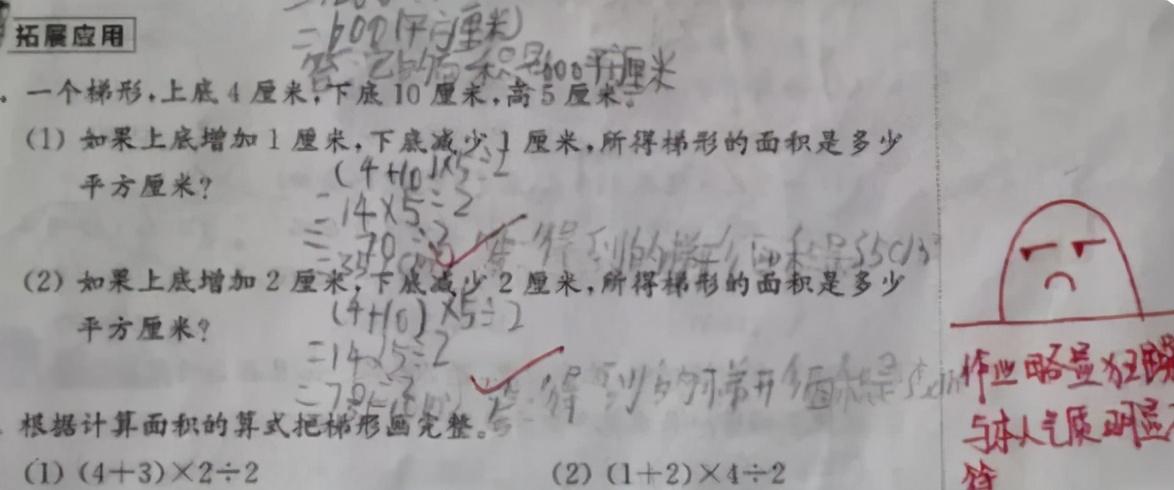 =600(平方厘米)
拓展应用
答:它的面积是600平方厘米
一个梯形,上底4厘米,下底10厘米,高5厘米。
(1) 如果上底增加1厘米,下底减少1厘米,所得梯形的面积是多少
平方厘米?
(4+10)×5÷2
=14×5÷2
=70÷2
=35
答:得到的梯形面积是35cm²
(2) 如果上底增加2厘米,下底减少2厘米,所得梯形的面积是多少
平方厘米?
(4+10)×5÷2
=14×5÷2
=70÷2
答:得到的梯形面积是
作业略显狂躁
与本人气质明显
符
根据计算面积的算式把梯形画完整。
(1) (4+3)×2÷2
(2) (1+2)×4÷2